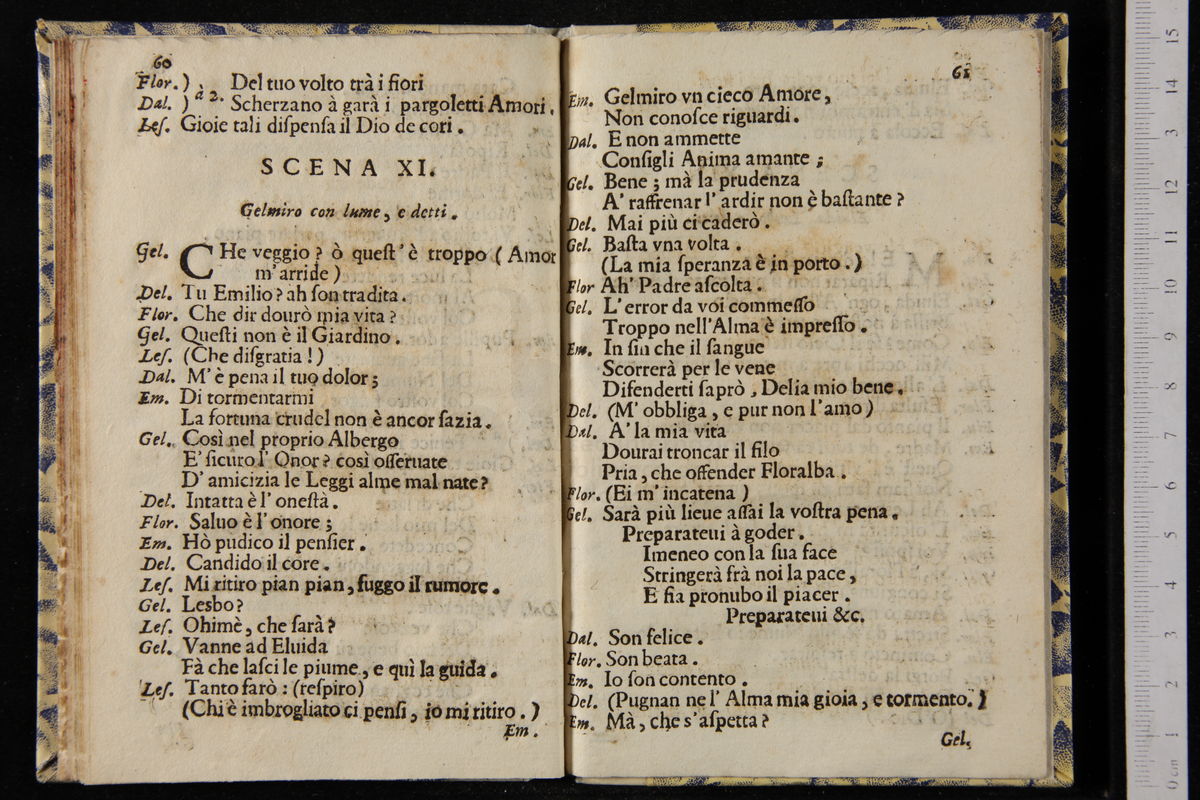 60
Flor. ) Del tuo volto trà i fiori
Dal. ) à 2. Scherzano à garà i pargoletti Amori.
Leſ. Gioie tali diſpenſa il Dio de cori.
SCENA XI.
Gelmiro con lume, e detti.
Gel. CHe veggio? ò queſt' è troppo (Amor
m' arride)
Del. Tu Emilio? ah ſon tradita.
Flor. Che dir dourò mia vita?
Gel. Queſti non è il Giardino.
Leſ. (Che diſgratia!)
Dal. M' è pena il tuo dolor;
Em. Di tormentarmi
La fortuna crudel non è ancor ſazia.
Gel. Così nel proprio Albergo
E' ſicuro l' Onor? così oſſeruate
D' amicizia le Leggi alme mal nate?
Del. Intatta è l' oneſtà.
Flor. Saluo è l' onore;
Em. Hò pudico il penſier.
Del. Candido il core.
Leſ. Mi ritiro pian pian, fuggo il rumore.
Gel. Lesbo?
Leſ. Ohimè, che ſarà?
Gel. Vanne ad Eluida
Fà che laſci le piume, e quì la guida.
Leſ. Tanto farò: (reſpiro)
(Chi è imbrogliato ci penſi, io mi ritiro.)
Em.
61
Em. Gelmiro vn cieco Amore,
Non conoſce riguardi.
Dal. E non ammette
Conſigli Anima amante;
Gel. Bene; mà la prudenza
A' raffrenar l' ardir non è baſtante?
Del. Mai più ci caderò.
Gel. Baſta vna volta.
(La mia ſperanza è in porto.)
Flor Ah' Padre aſcolta.
Gel. L' error da voi commeſſo
Troppo nell' Alma è impreſſo.
Em. In ſin che il ſangue
Scorrerà per le vene
Difenderti ſaprò, Delia mio bene.
Del. (M' obbliga, e pur non l' amo)
Dal. A' la mia vita
Dourai troncar il filo
Pria, che offender Floralba.
Flor. (Ei m' incatena)
Gel. Sarà più lieue aſſai la voſtra pena.
Preparateui à goder.
Imeneo con la ſua face
Stringerà frà noi la pace,
E ſia pronubo il piacer.
Preparateui &c.
Dal. Son felice.
Flor. Son beata.
Em. Io ſon contento.
Del. (Pugnan ne l' Alma mia gioia, e tormento.)
Em. Mà, che s' aſpetta?
Gel.
15
14
13
12
11
10
9
8
7
6
5
4
3
2
1
0 cm